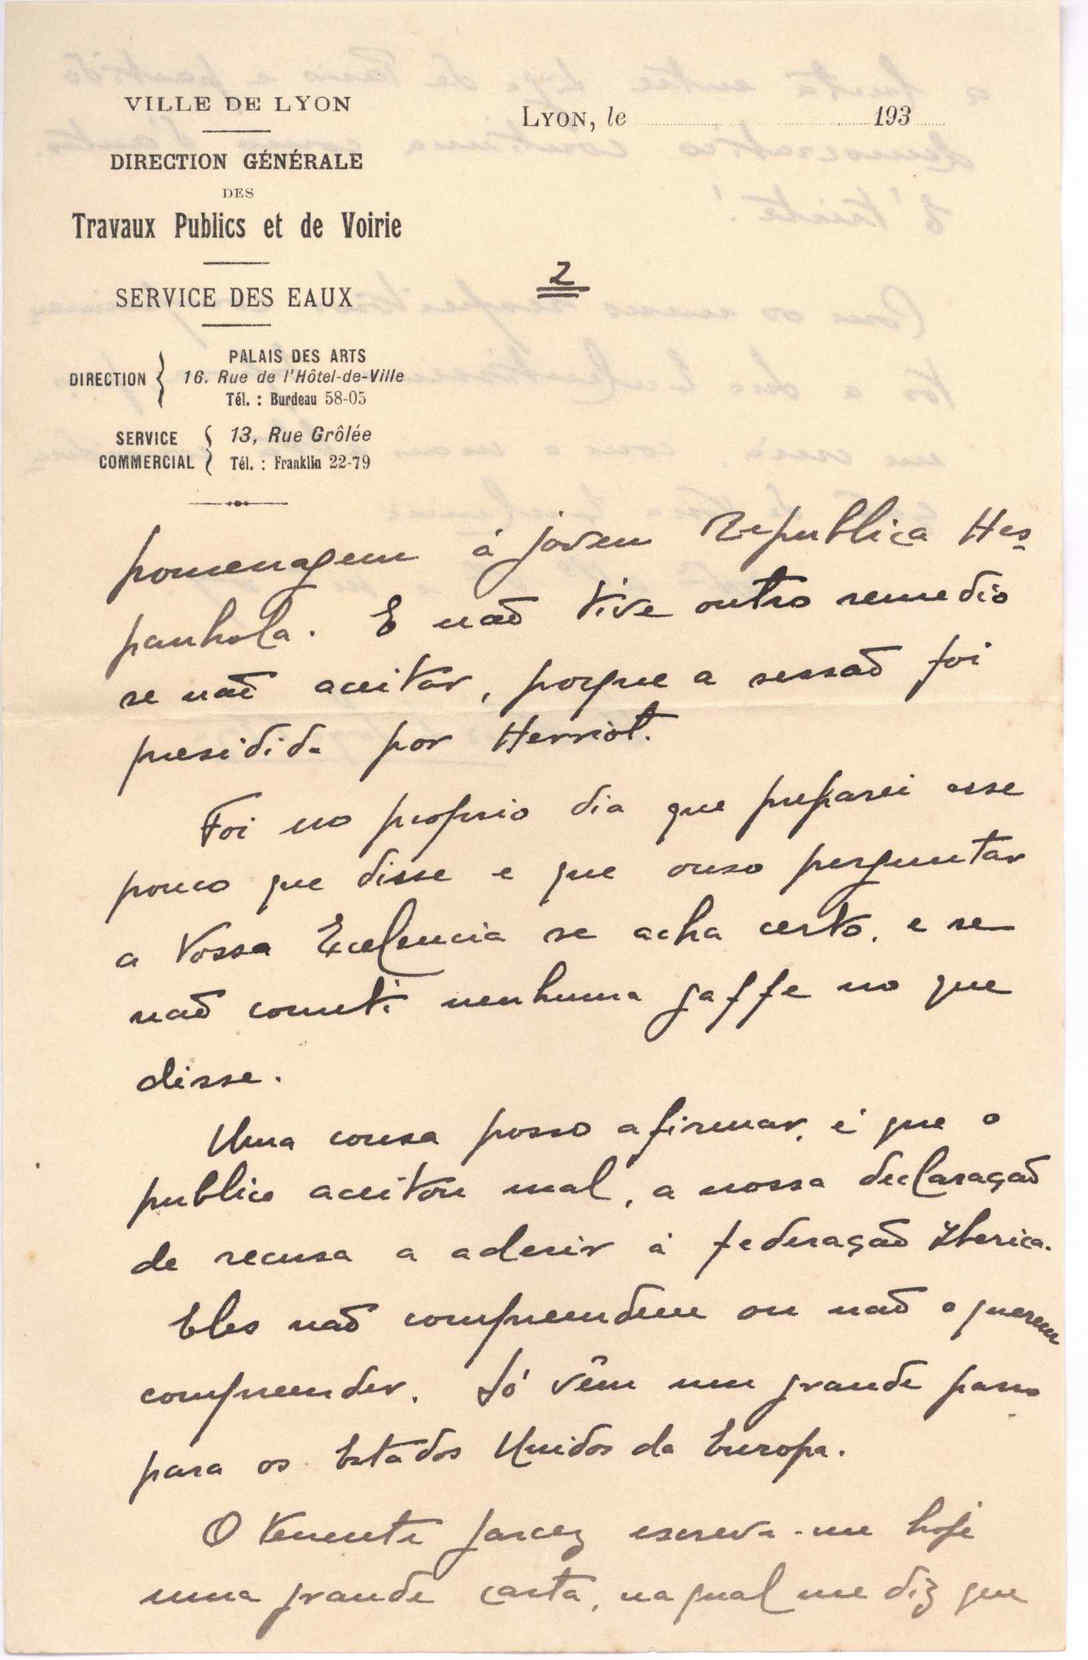 VILLE DE LYON
DIRECTION GÉNÉRALE
DES
Travaux Publics et de Voirie
SERVICE DES EAUX
DIRECTION
PALAIS DES ARTS
16. Rue de l'Hôtel-de-Ville
Tél. : Burdeau 58-05
SERVICE
COMMERCIAL
13, Rue Grôlée
Tél. : Franklin 22-79
LYON, le 193
2
homenagem á joven Republica Hes-
panhola. E não tive outro remedio
se não aceitar, porque a sessão foi
presidida por Herriot.
Foi no proprio dia que preparei esse
pouco que disse e que ouso perguntar
a Vossa Excelencia se acha certo, e se
não cometi nenhuma gaffe no que
disse.
Uma cousa posso afirmar, é que o
publico aceitou mal, a nossa declaração
de recusa a aderir á federação Iberica.
Eles não compreendem ou não o querem
compreender. Só vêm um grande passo
para os Estados Unidos da Europa.
O tenente Garcez escreve-me hoje
uma grande carta, na qual me diz que